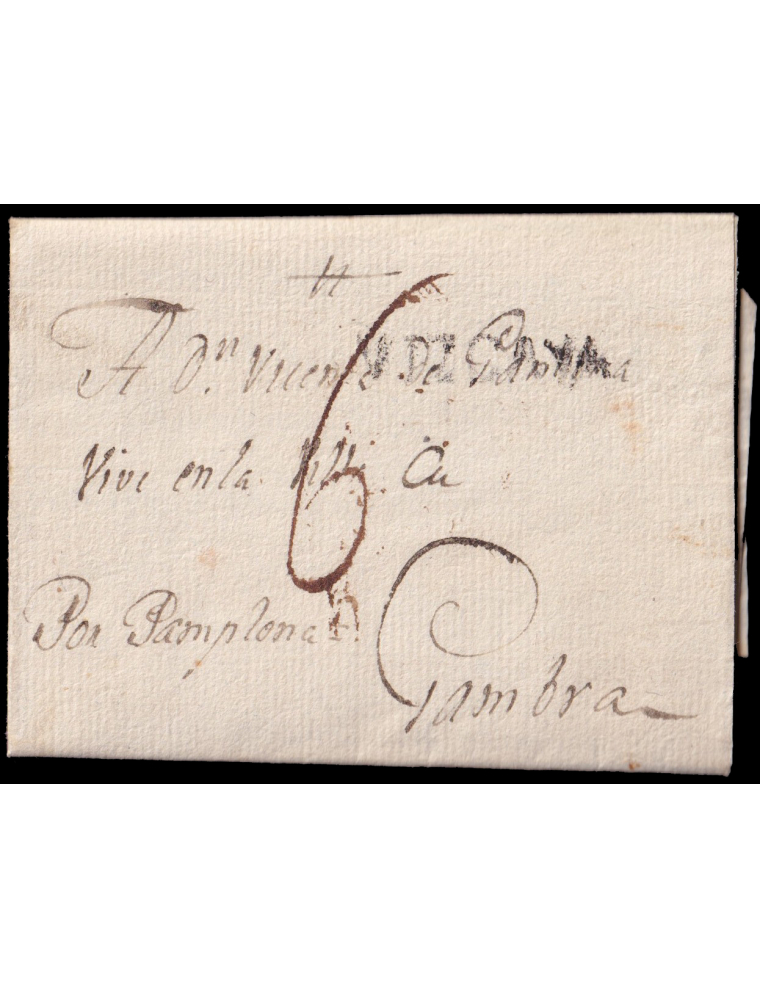 A Dn. Vicente de Gambra
Vive en la Villa
6
Por Pamplona
Gambra